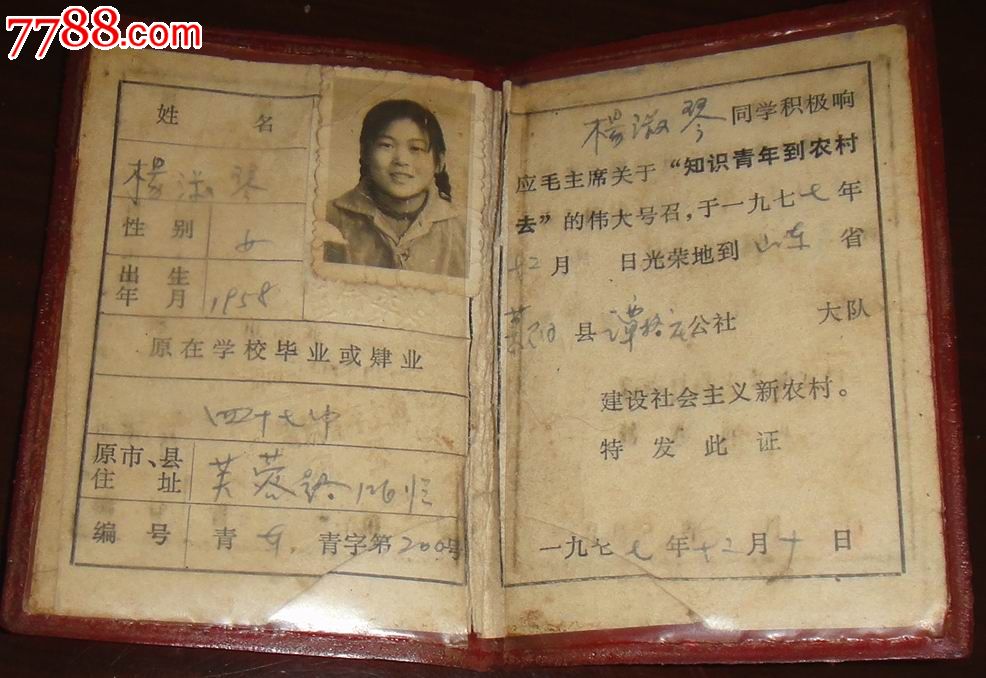 7788.com
姓 名
杨淑琴
性 别 女
出生年月 1958
原在学校毕业或肄业
四十七中
原市、县住址 芙蓉路126号
编 号 青 青字第200号
杨淑琴同学积极响
应毛主席关于“知识青年到农村
去”的伟大号召，于一九七七年
十二月 日光荣地到 山东 省
县 谭格庄公社 大队
建设社会主义新农村。
特 发 此 证
一九七七年十二月十日